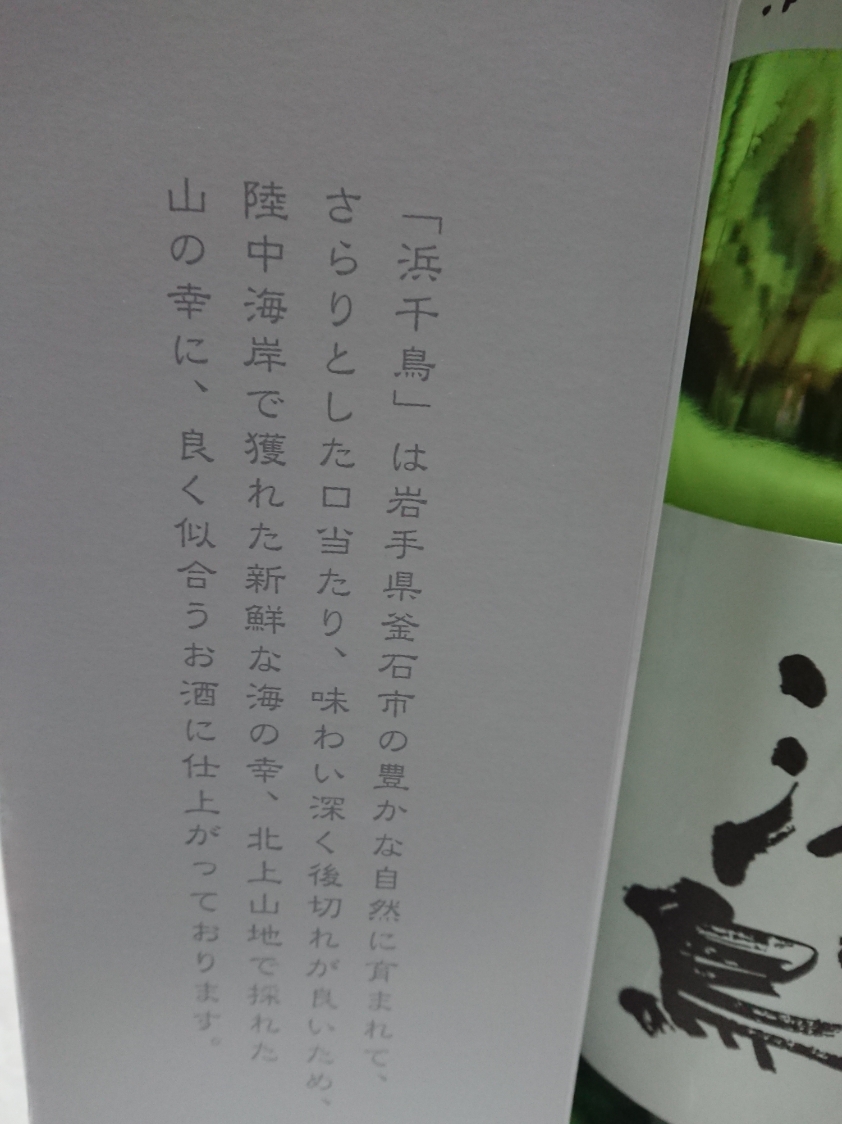 「浜千鳥」は岩手県釜石市の豊かな自然に育まれて、
さらりとした口当たり、味わい深く後切れが良いため、
陸中海岸で獲れた新鮮な海の幸、北上山地で採れた
山の幸に、良く似合うお酒に仕上がっております。